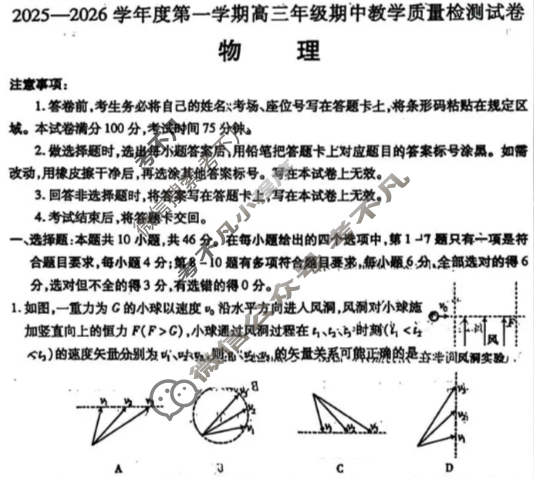 2025—2026学年度第一学期高三年级期中教学质量检测试卷
物 理
注意事项：
1.答卷前,考生务必将自己的姓名、考场、座位号写在答题卡上,将条形码粘贴在规定区
域。本试卷满分100分,考试时间75分钟。
2.做选择题时,选出每小题答案后,用铅笔把答题卡上对应题目的答案标号涂黑。如需
改动,用橡皮擦干净后,再选涂其他答案标号。写在本试卷上无效。
3.回答非选择题时,将答案写在答题卡上,写在本试卷上无效。
4.考试结束后,将答题卡交回。
一、选择题:本题共10小题,共46分。在每小题给出的四个选项中,第1—7题只有一项是符
合题目要求,每小题4分;第8—10题有多项符合题目要求,每小题6分,全部选对的得6
分,选对但不全的得3分,有选错的得0分。
1.如图,一重力为G的小球以速度v₀沿水平方向进入风洞,风洞对小球施
加竖直向上的恒力F(F>G),小球通过风洞过程在t₁、t₂、t₃时刻(t₁<t₂
<t₃)的速度矢量分别为v₁、v₂、v₃,则v₁、v₂、v₃的矢量关系可能正确的是
v₀
F
风
风洞实验
v₁ v₂ v₃
B
v₃
v₂
v₁
v₁ v₂ v₃
v₃
v₂
v₁
A C D
微信搜索考不凡
微信公众号考不凡
考不凡